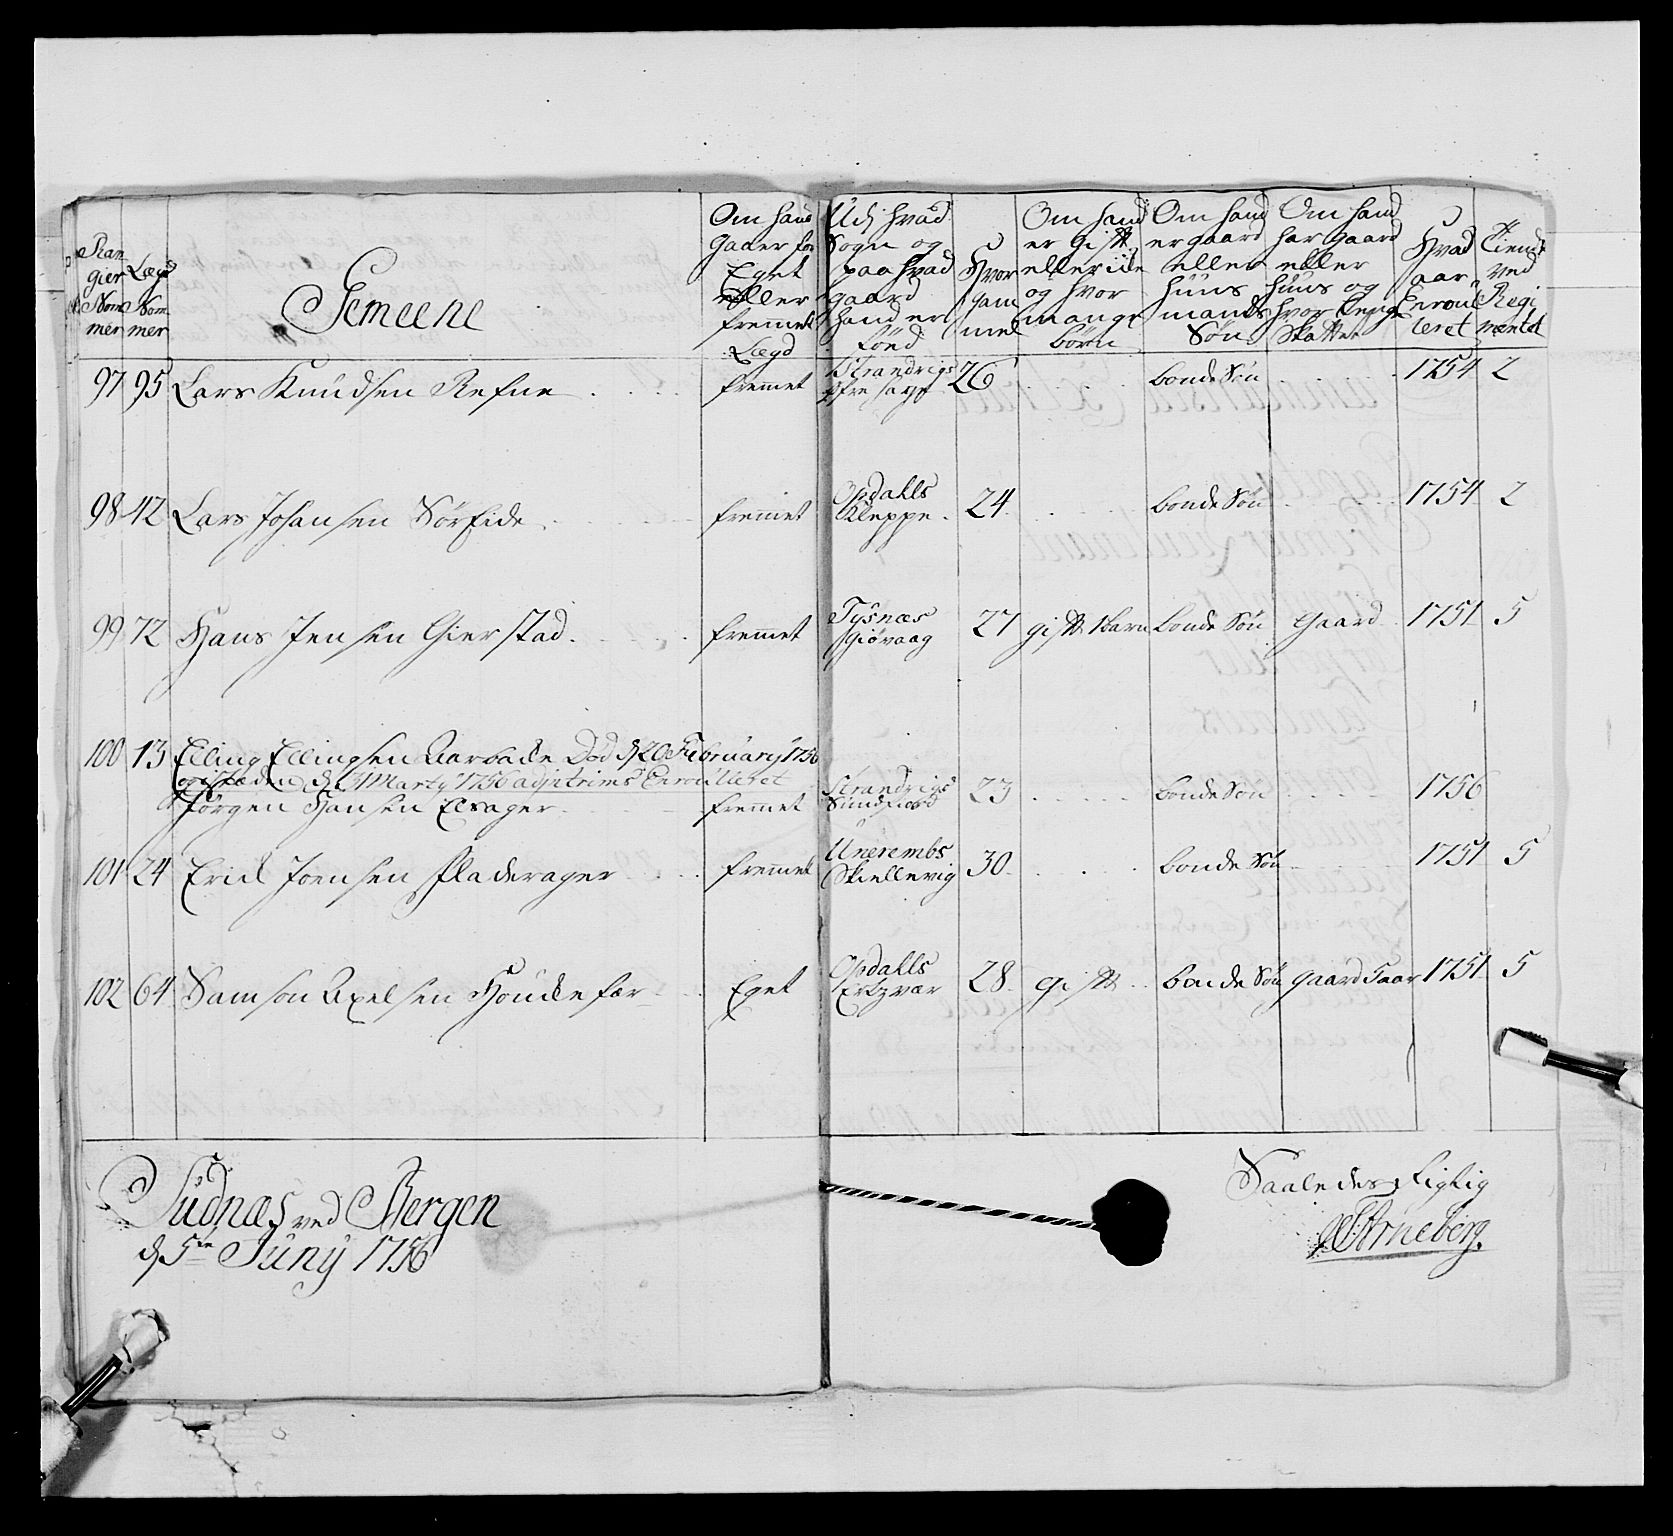 Ran
gier
Nom
mer
Lægd
Nom
mer
Gemeene
Om hand
gaaer for
Eget
eller
fremmet
Lægd
Udj hvad
Sogn og
paa hvad
gaard
hand er
föed
Hvor
gam
mel
Om hand
er Gift
eller
og hvor
mange
börn
Om hand
er gaard
eller
huus
mands
Søn
Om hand
har gaard
eller
huus og
hvor lenge
Skattet
Hvad
aar
Enroul
leret
Tiendt
ved
Regi
mentet
97 95 Lars Knudsen Refne fremmet Strandvigs 26 bonde Søn 1754 2
98 42 Lars Johansen Söreide fremmet Opdahls Kleppe 24 bonde Søn 1754 2
99 72 Hans Jensen Gierstad fremmet Tysnæs Giövaag 27 gift 1 barn bonde Søn Gaard 1751 5
100 13 Elling Ellingsen Aarbacke Död d. 20 February 1756
og i steden d. Marty 1756 Enroulleret
Jörgen Hansen Elsager fremmet Strandvigs Sundfiord 23 bonde Søn 1756
101 24 Erick Joensen Pladerager fremmet Skiellevig 30 bonde Søn 1751 5
102 64 Samson Axelsen Hondefær Eget Opdahls 28 gift bonde Søn gaard 5 aar 1751 5
Sudnæs ved Bergen
d. 5te Juny 1756
Saaledes Rigtig
Arneberg